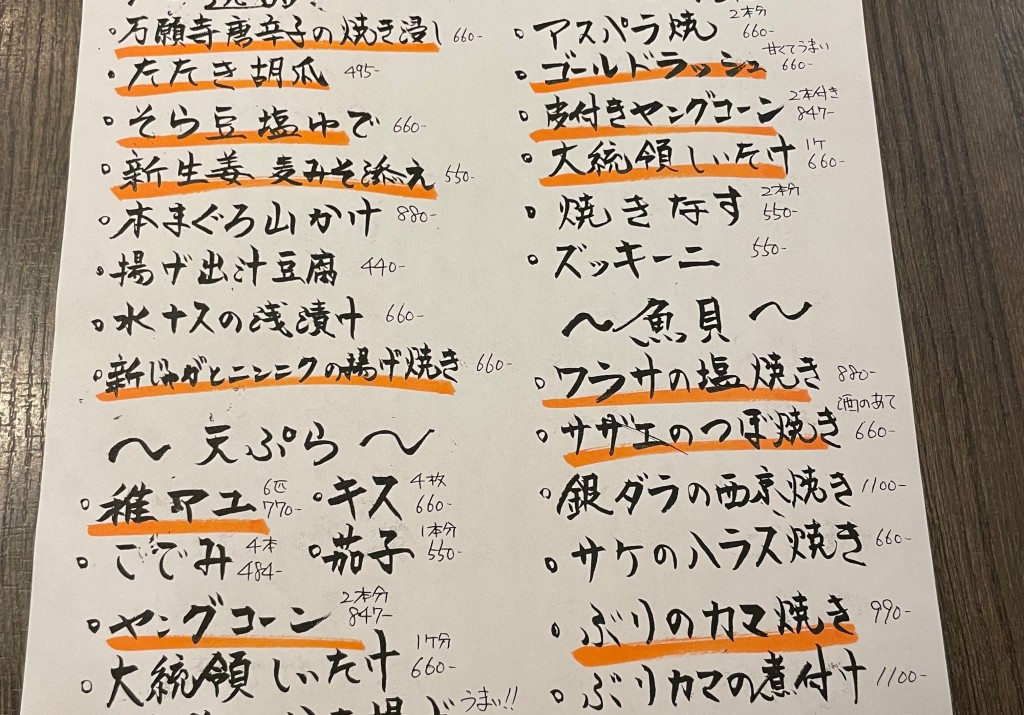 ・石願寺唐辛子の焼き浸し 660-
・たたき胡瓜 495-
・そら豆塩ゆで 660-
・新生姜 麦みそ添え 550-
・本まぐろ山かけ 880-
・揚げ出汁豆腐 440-
・水ナスの浅漬け 660-
・新じゃがとニンニクの揚げ焼き 660-
〜天ぷら〜
・稚アユ 6匹 770-
・キス 4枚 660-
・こごみ 4本 484-
・茄子 1本分 550-
・ヤングコーン 2本分 847-
・大統領しいたけ 1ケ分 660-
うまい!!
・アスパラ焼 2本分 660-
・ゴールドラッシュ 甘くてうまい 660-
・皮付きヤングコーン 2本付き 847-
・大統領しいたけ 1ケ 660-
・焼きなす 2本分 550-
・ズッキーニ 550-
〜魚貝〜
・ワラサの塩焼き 880-
・サザエのつぼ焼き 酒のあて 660-
・銀ダラの西京焼き 1100-
・サケのハラス焼き 660-
・ぶりのカマ焼き 990-
・ぶりカマの煮付け 1100-